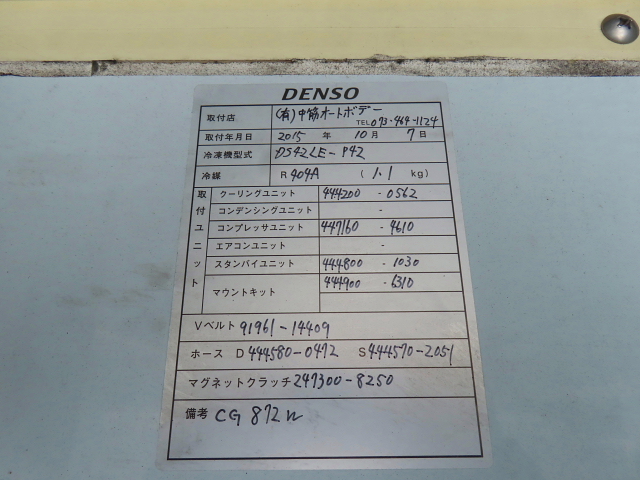 DENSO
取付店 (有)中筋オートボデー
TEL 073-464-1124
取付年月日 2015 年 10 月 7 日
冷凍機型式 DS42LE-P42
冷媒 R 404A ( 1.1 kg)
取付ユニット
クーリングユニット 444200 - 0562
コンデンシングユニット -
コンプレッサユニット 447160 - 4610
エアコンユニット -
スタンバイユニット 444800 - 1030
マウントキット 444900 - 6310
Vベルト 91961-14409
ホース D 444580-0472 S 444570-2051
マグネットクラッチ 247300-8250
備考 CG 872W